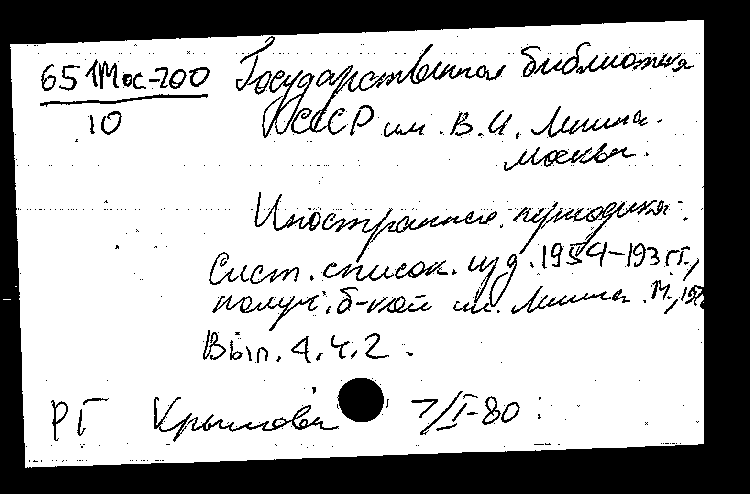 65 1Мос-200 Государственная библиотека
10 СССР им. В.И. Ленина.
Москва.
Иностранная периодика.
Сист. список. изд. 1954-193 гг.,
получ. б-кой им. Ленина. М.,
Вып. 4. ч. 2.
РГ Крылова 7/I-80